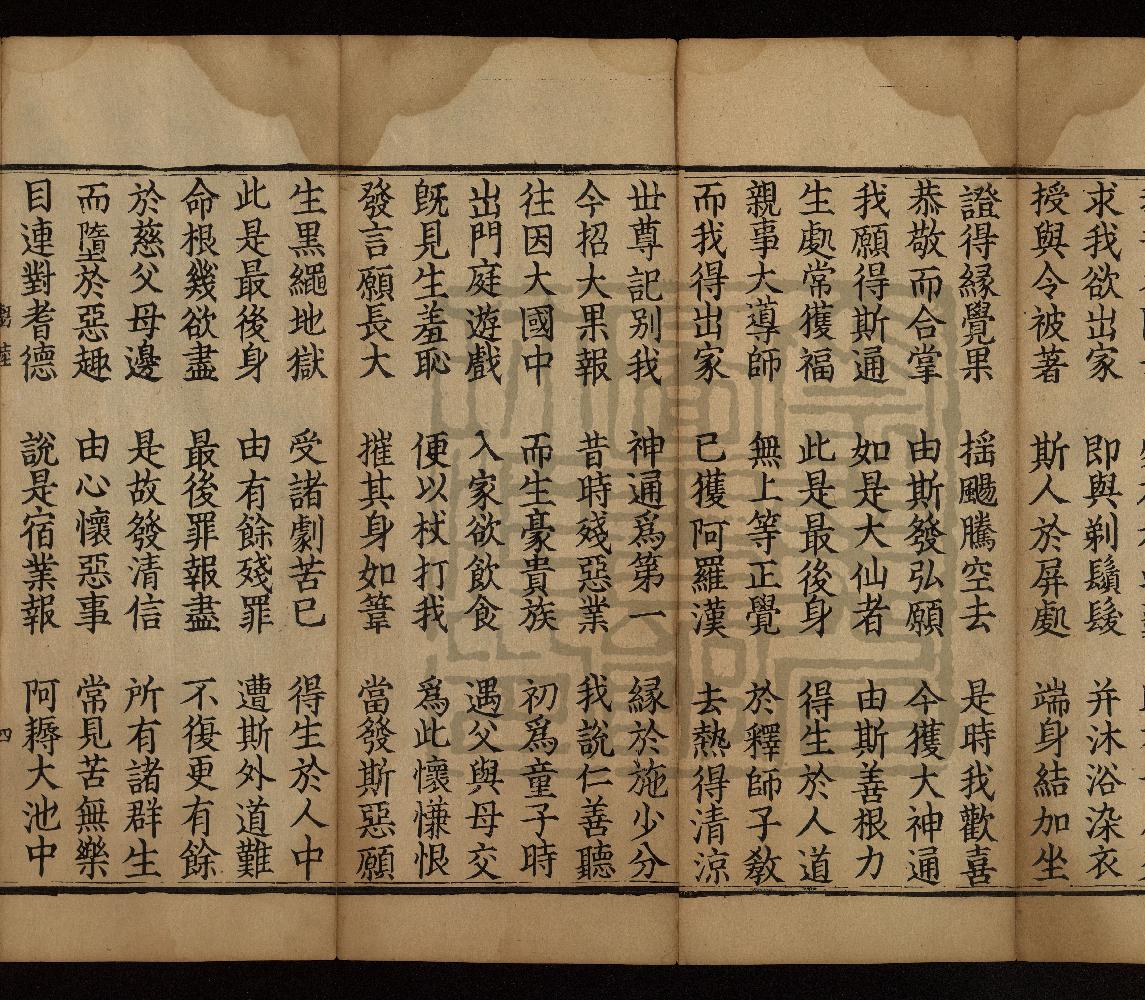 求我欲出家 即與剃鬚髮 并沐浴染衣
授與令被著 斯人於屏處 端身結加坐
證得緣覺果 搖颺騰空去 是時我歡喜
恭敬而合掌 由斯發弘願 今獲大神通
我願得斯通 如是大仙者 由斯善根力
生處常獲福 此是最後身 得生於人道
親事大導師 無上等正覺 於釋師子教
而我得出家 已獲阿羅漢 去熱得清涼
世尊記別我 神通爲第一 緣於施少分
今招大果報 昔時殘惡業 我說仁善聽
往因大國中 而生豪貴族 初爲童子時
出門庭遊戲 入家欲飲食 遇父與母交
旣見生羞恥 便以杖打我 爲此懷慊恨
發言願長大 摧其身如葦 當發斯惡願
生黑繩地獄 受諸劇苦已 得生於人中
此是最後身 由有餘殘罪 遭斯外道難
命根幾欲盡 最後罪報盡 不復更有餘
於慈父母邊 是故發清信 所有諸群生
而墮於惡趣 由心懷惡事 常見苦無樂
目連對耆德 說是宿業報 阿耨大池中
四